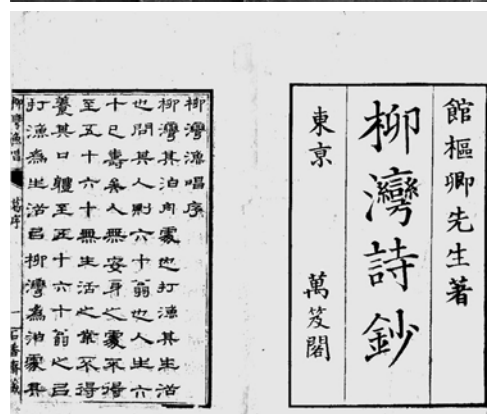 館樞卿先生著
柳灣詩鈔
東京　萬笈閣
柳灣漁唱序
柳灣其泊舟處也打漁其生活
也問其人則六十翁也人生六
十已壽矣人無安身之處不得
至五十六十無生活之業不得
養其口軆至五十六十翁之㠯
打漁為生活㠯柳灣為泊處其
柳灣漁唱　葛序　一　石香齋藏